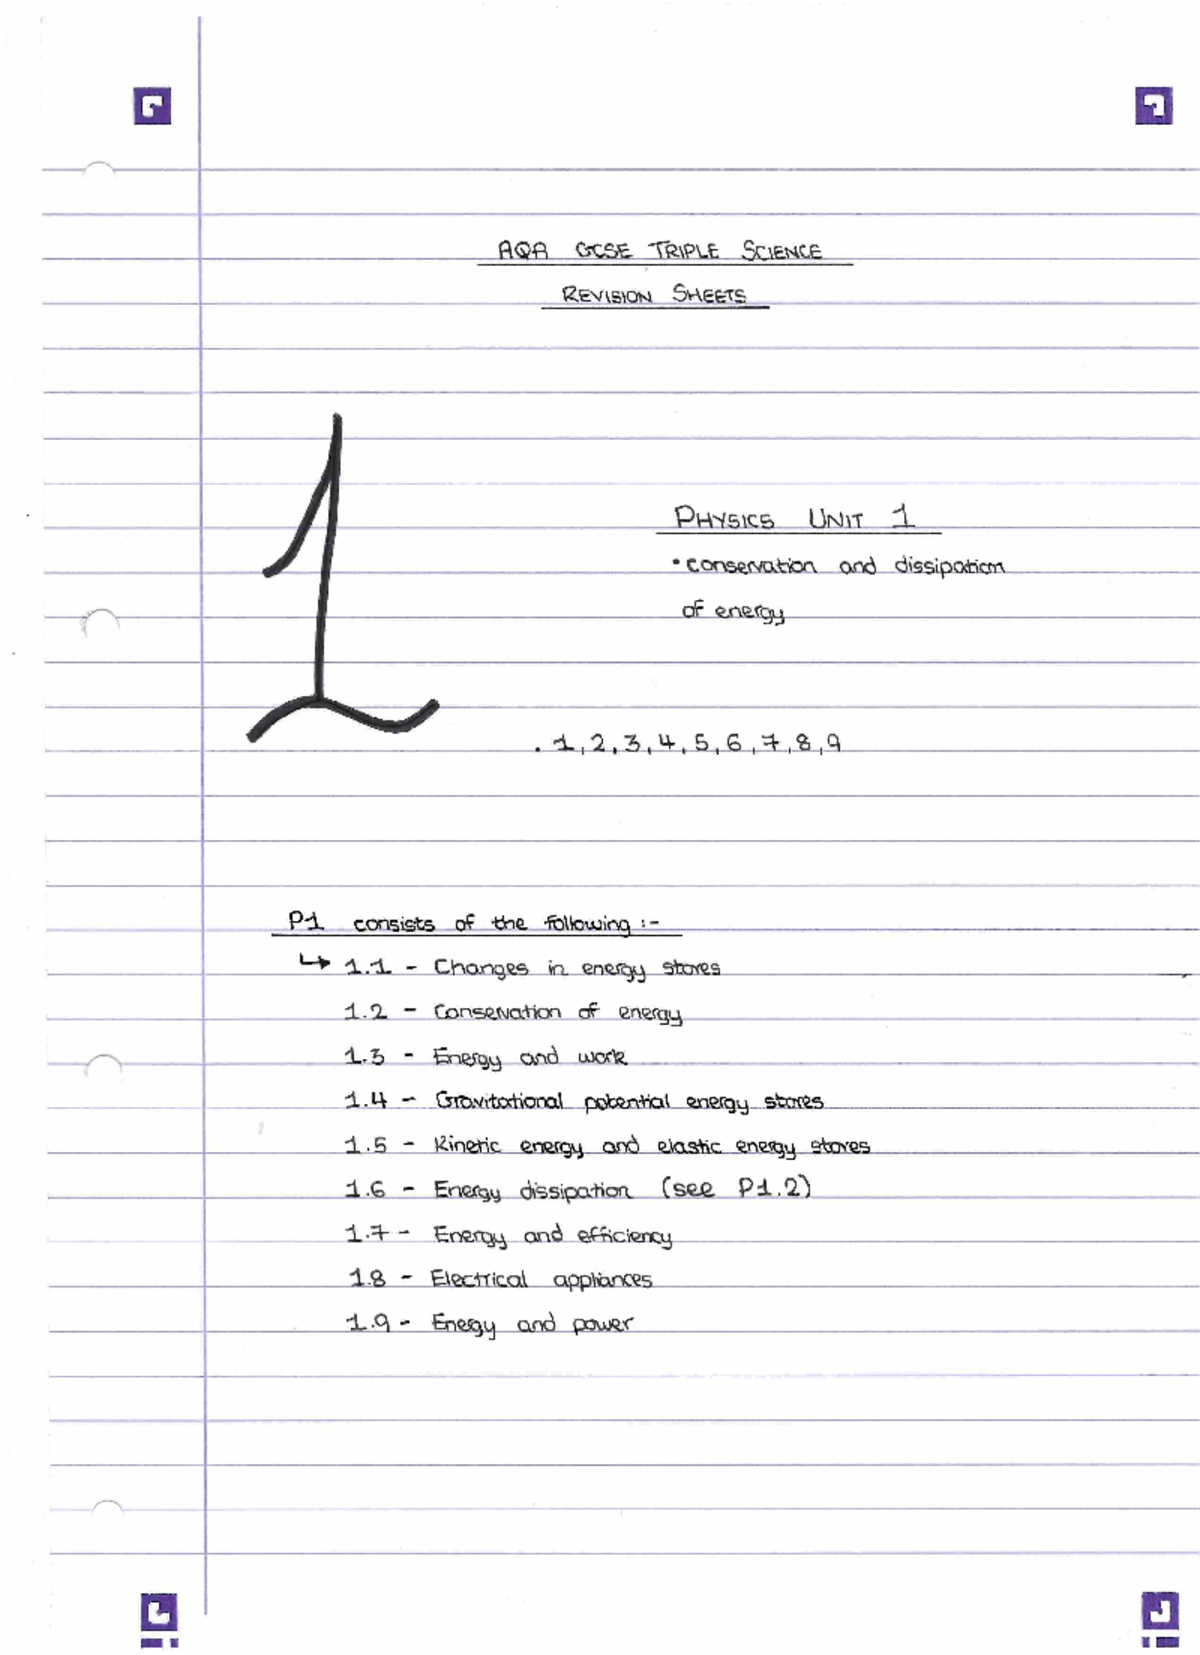 AQA GCSE TRIPLE SCIENCE
REVISION SHEETS
1
PHYSICS UNIT 1
• conservation and dissipation
of energy
. 1,2,3,4,5,6,7,8,9
P1 consists of the following :-
↳ 1.1 - Changes in energy stores
1.2 - Conservation of energy
1.3 - Energy and work
1.4 - Gravitational potential energy stores
1.5 - Kinetic energy and elastic energy stores
1.6 - Energy dissipation (see P1.2)
1.7 - Energy and efficiency
1.8 - Electrical appliances
1.9 - Energy and power